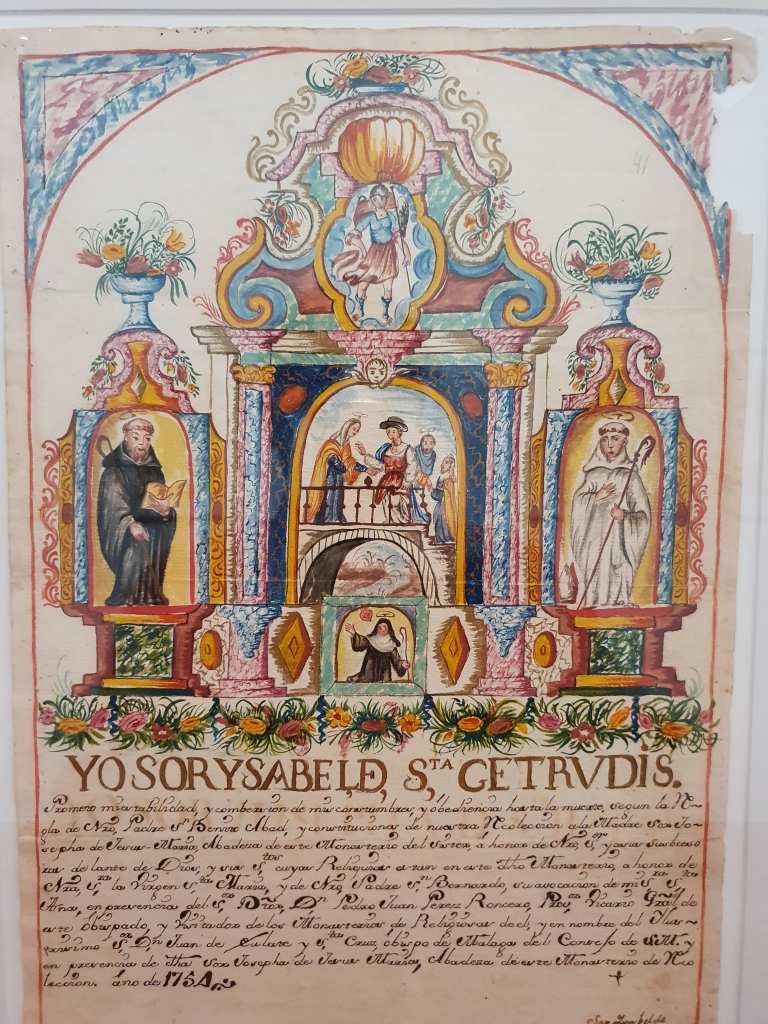 41
YO SOR YSABEL, D, S,TA GETRVDIS.
Prometo mi estabilidad, y combercion de mis constumbres, y obediencia hasta la muerte, segun la Re~
gla de Nro, Padre Sn Benito Abad, y constituciones de nuestra Recoleccion a la Madre Sor Jo~
sepha de Jesus Maria, Abadeza de este Monasterio del Sister, a honor de Nro, Sor, y a sus
de lante de Dios, y sus Stos cuyas Religuias estan en este dho Monasterio, a honor de
Nra, Sra, la Virgen Sta Maria, y de Nro, Padre Sn Bernardo, su avocacion de mi Sra Sta
Ana, en precencia del Sr Don Pedro Juan Perez Roncero, Vicario Gral de
este Obispado, y Visitador de los Monasterios de Religiosas de el, y en nombre del Ilus~
trisimo Sor Dn Juan de Eulate y Sta Cruz, obispo de Malaga del Concejo de S.M. y
en precencia de dha Sor Josepha de Jesus Maria, Abadeza de este Monasterio de Reco
leccion. año de 1754
Sor Ysabel de